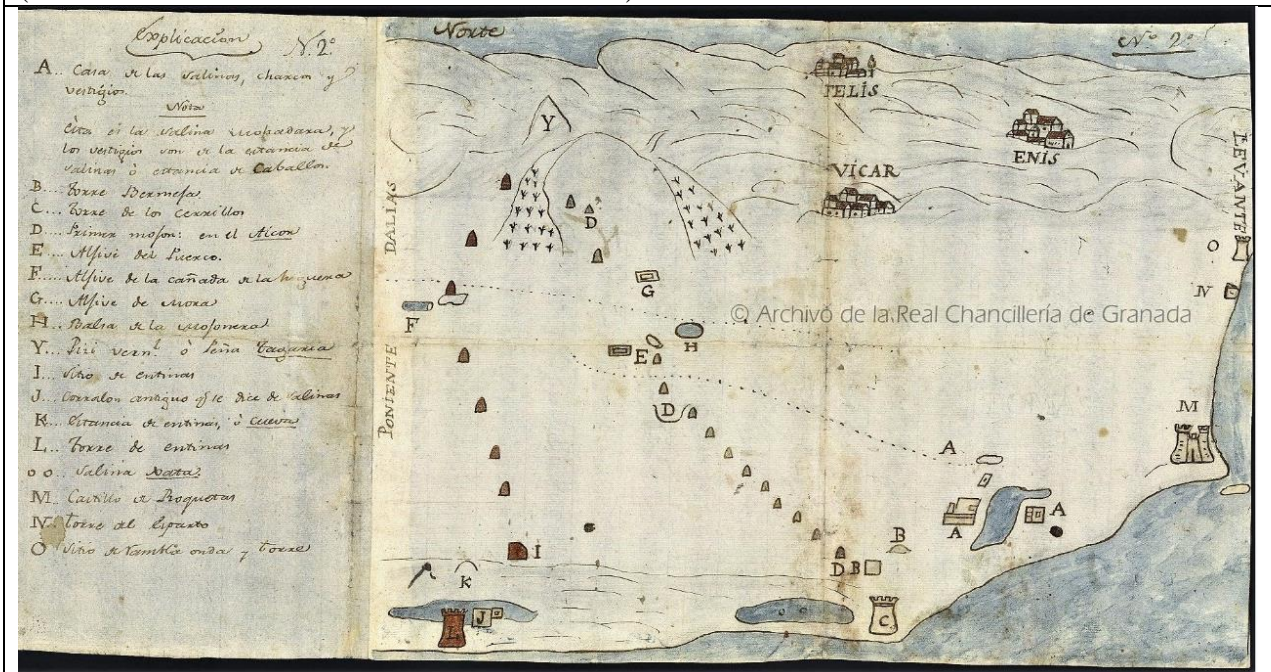 Explicación N. 2.º
A.. Casa de las Salinas, charcon y
vestigios.
Nota
Esta es la Salina y
los vestigios son de la estancia de
Salinas ò estancia de Caballon.
B.. Torre Bermeja
C... Torre de los cerrillos
D.... Primer mojon: en el Alcor
E... Alfive del Puerco.
F.... Alfive de la cañada de la higuera
G.... Alfive de Mora
H.. Balsa de la mojonera
Y.. ò Peña
I... Sitio de entinas
J.. Corralon antiguo qᵉ se dice de Salinas
K.. Estancia de entinas, ò Cueva
L.. Torre de entinas
o o.. Salina
M.. Castillo de Roquetas
N.. Torre del Esparto
O Sitio de Rambla onda y torre
Norte
Nº 2º
FELIS
ENIS
VÍCAR
LEVANTE
DALIAS
PONIENTE
Y
D
O
N
G
F
© Archivo de la Real Chancillería de Granada
H
E
D
M
A
A
A
B
I
D B
K
J
L
C